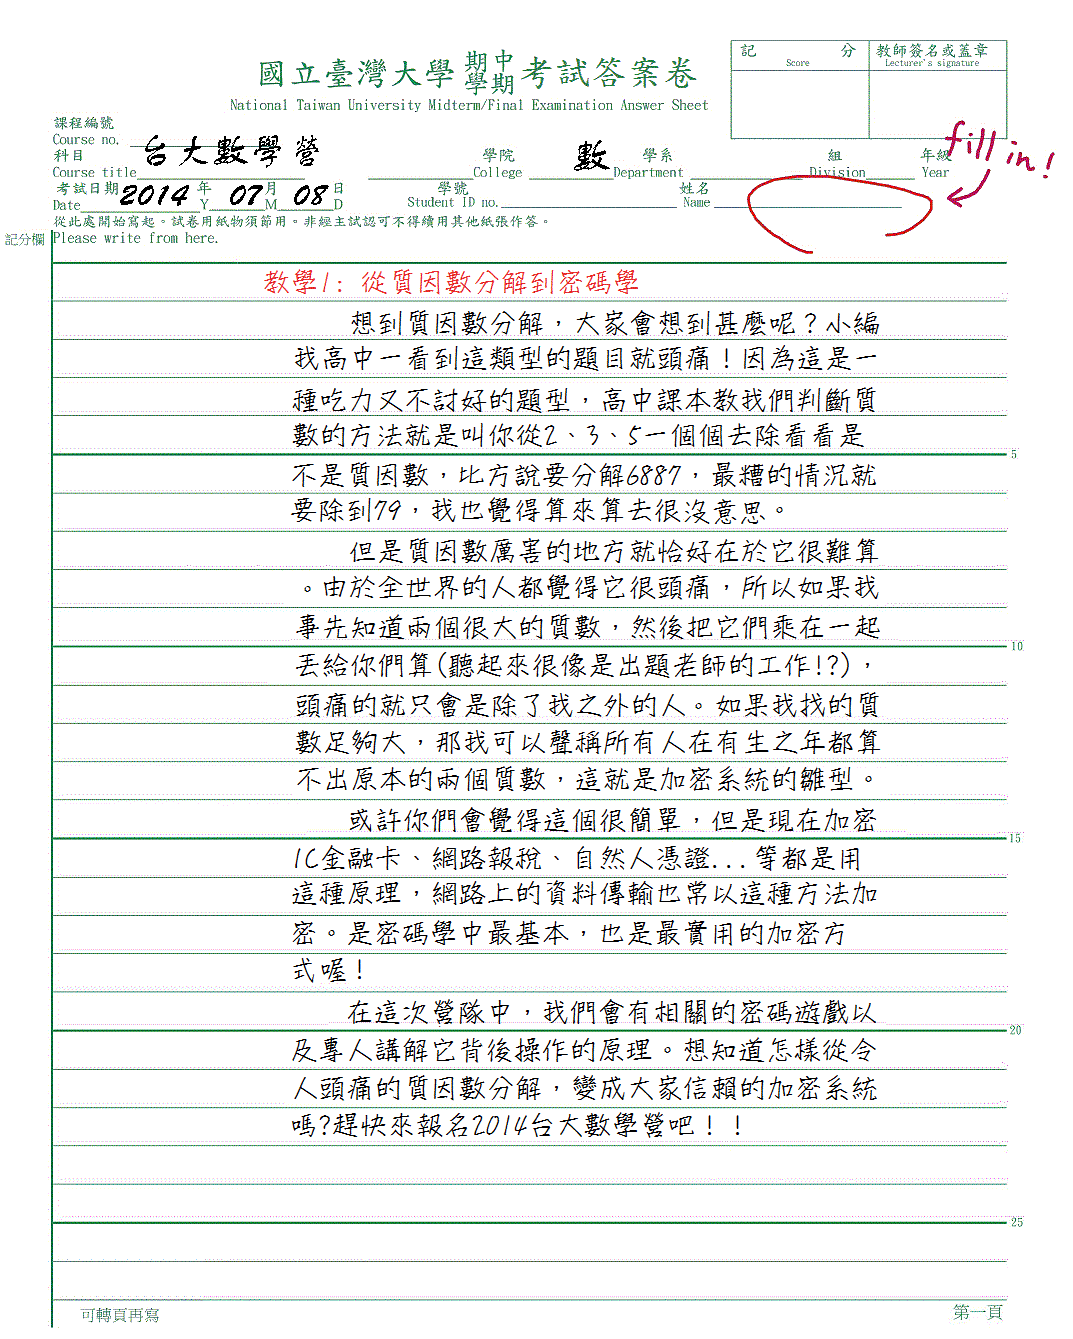 國立臺灣大學 期中 學期 考試答案卷
National Taiwan University Midterm/Final Examination Answer Sheet
記 分 教師簽名或蓋章
Score Lecturer's signature
課程編號
Course no.
科目 台大數學營 學院 數 學系 組 年級
Course title College Department Division Year
fill in!
考試日期 2014 年 07 月 08 日 學號 姓名
Date Y M D Student ID no. Name
從此處開始寫起。試卷用紙物須節用。非經主試認可不得續用其他紙張作答。
記分欄 Please write from here.
教學1: 從質因數分解到密碼學
想到質因數分解,大家會想到甚麼呢?小編
我高中一看到這類型的題目就頭痛!因為這是一
種吃力又不討好的題型,高中課本教我們判斷質
數的方法就是叫你從2、3、5一個個去除看看是
5
不是質因數,比方說要分解6887,最糟的情況就
要除到79,我也覺得算來算去很沒意思。
但是質因數厲害的地方就恰好在於它很難算
。由於全世界的人都覺得它很頭痛,所以如果我
事先知道兩個很大的質數,然後把它們乘在一起
10
丟給你們算(聽起來很像是出題老師的工作!?),
頭痛的就只會是除了我之外的人。如果我找的質
數足夠大,那我可以聲稱所有人在有生之年都算
不出原本的兩個質數,這就是加密系統的雛型。
或許你們會覺得這個很簡單,但是現在加密
15
IC金融卡、網路報稅、自然人憑證...等都是用
這種原理,網路上的資料傳輸也常以這種方法加
密。是密碼學中最基本,也是最實用的加密方
式喔!
在這次營隊中,我們會有相關的密碼遊戲以
20
及專人講解它背後操作的原理。想知道怎樣從令
人頭痛的質因數分解,變成大家信賴的加密系統
嗎?趕快來報名2014台大數學營吧!!
25
可轉頁再寫 第一頁